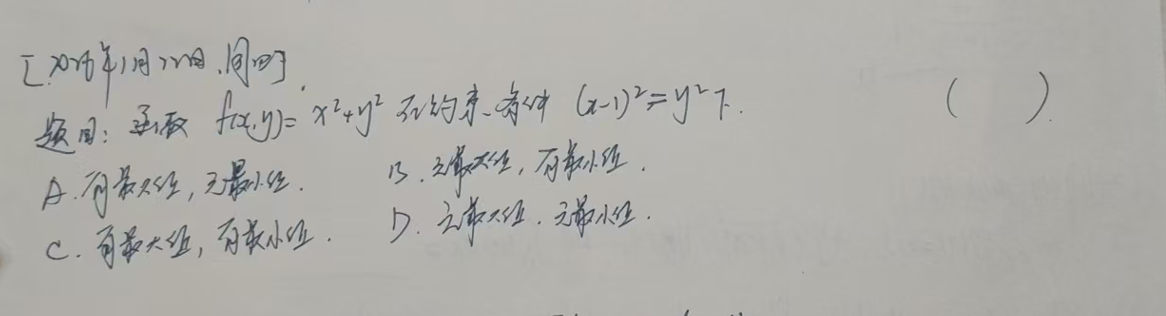 [2026年1月22日,周四]
题目:函数 f(x,y)=x²+y² 在约束条件 (x-1)²=y²下. ( ).
A.有最大值,无最小值. B.无最大值,有最小值.
C.有最大值,有最小值. D.无最大值.无最小值.